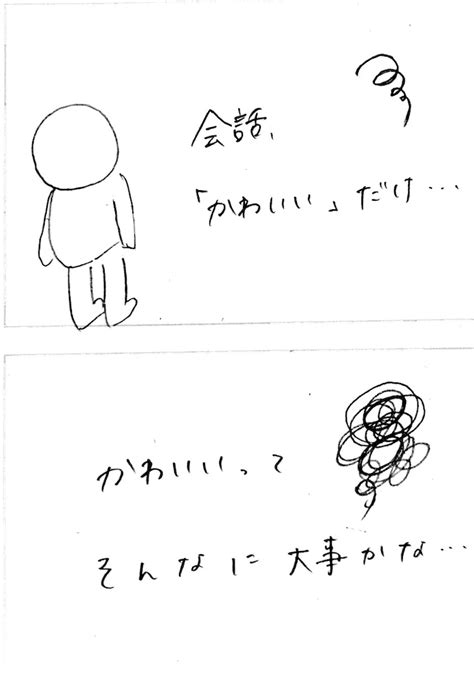 会話、
「かわいい」だけ…
かわいいって
そんなに大事かな…